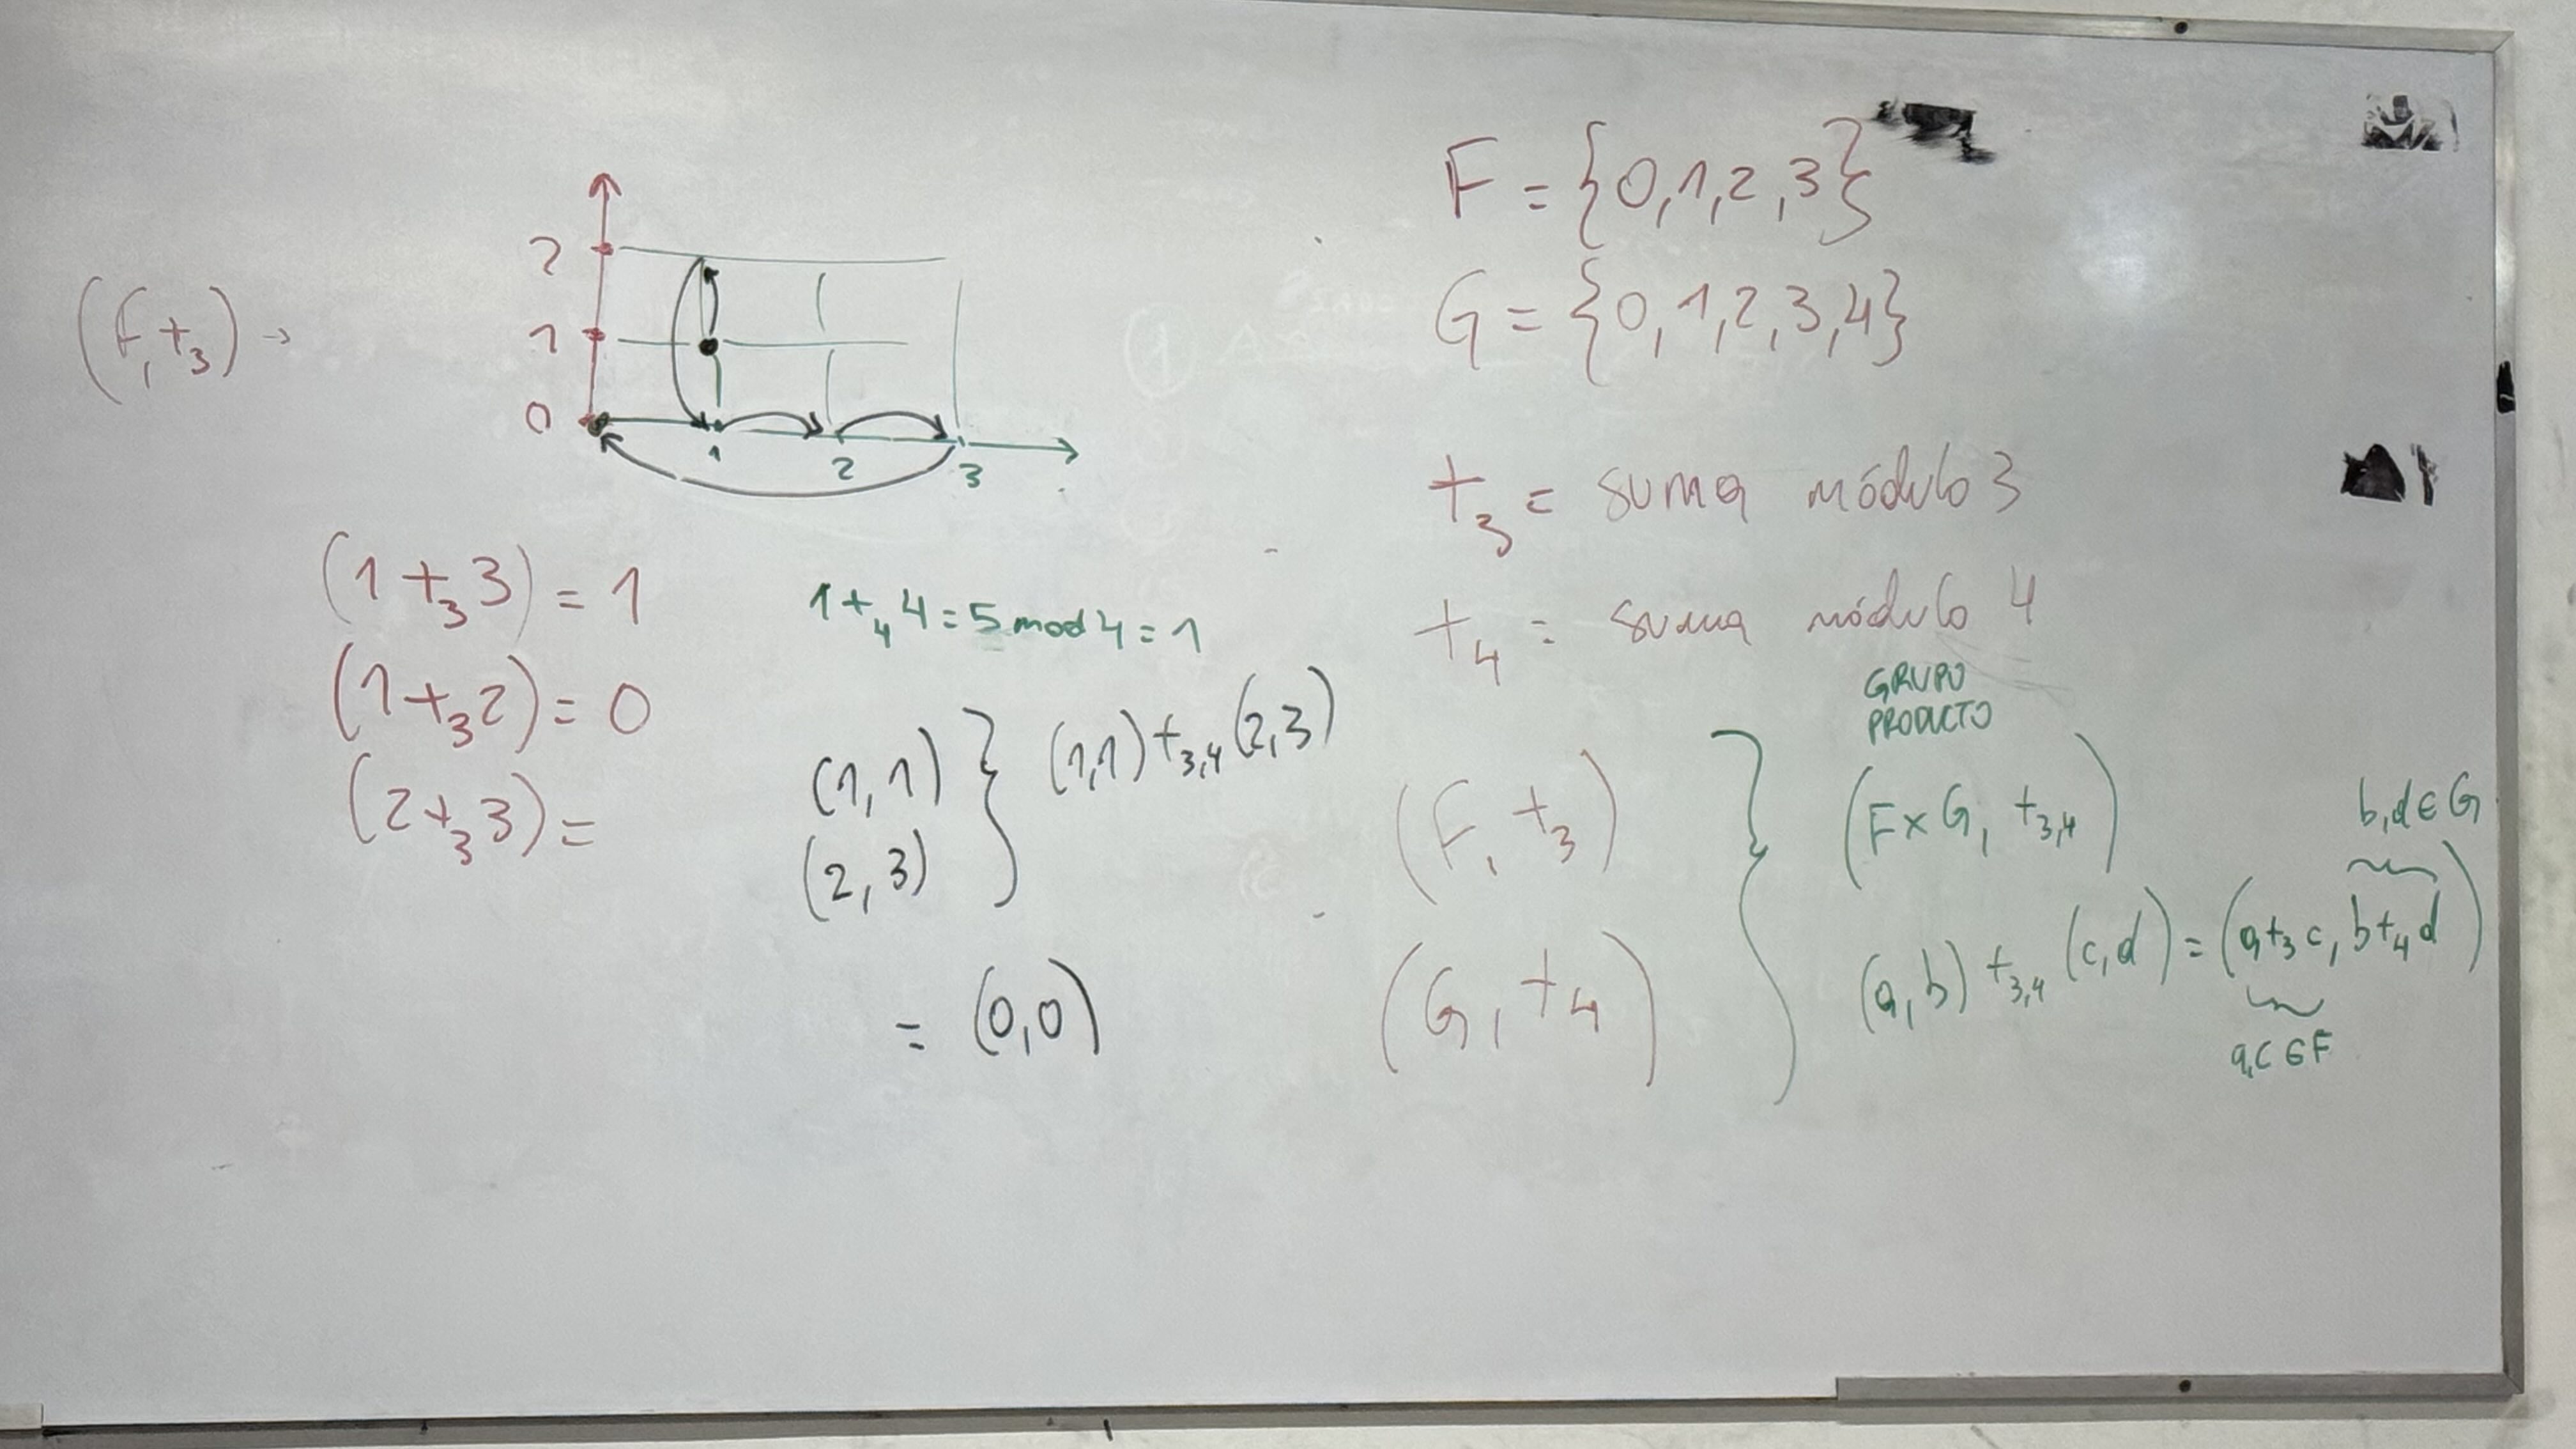 (F, +₃) →
2
1
0
1 2 3
(1 +₃ 3) = 1
(1 +₃ 2) = 0
(2 +₃ 3) =
1 +₄ 4 = 5 mod 4 = 1
(1, 1)
(2, 3)
} (1,1) +₃,₄ (2,3)
= (0,0)
F = {0,1,2,3}
G = {0,1,2,3,4}
+₃ = suma módulo 3
+₄ = suma módulo 4
(F, +₃)
(G, +₄)
}
GRUPO
PRODUCTO
(F × G, +₃,₄)
b,d ∈ G
(a,b) +₃,₄ (c,d) = (a +₃ c, b +₄ d)
a,c ∈ F